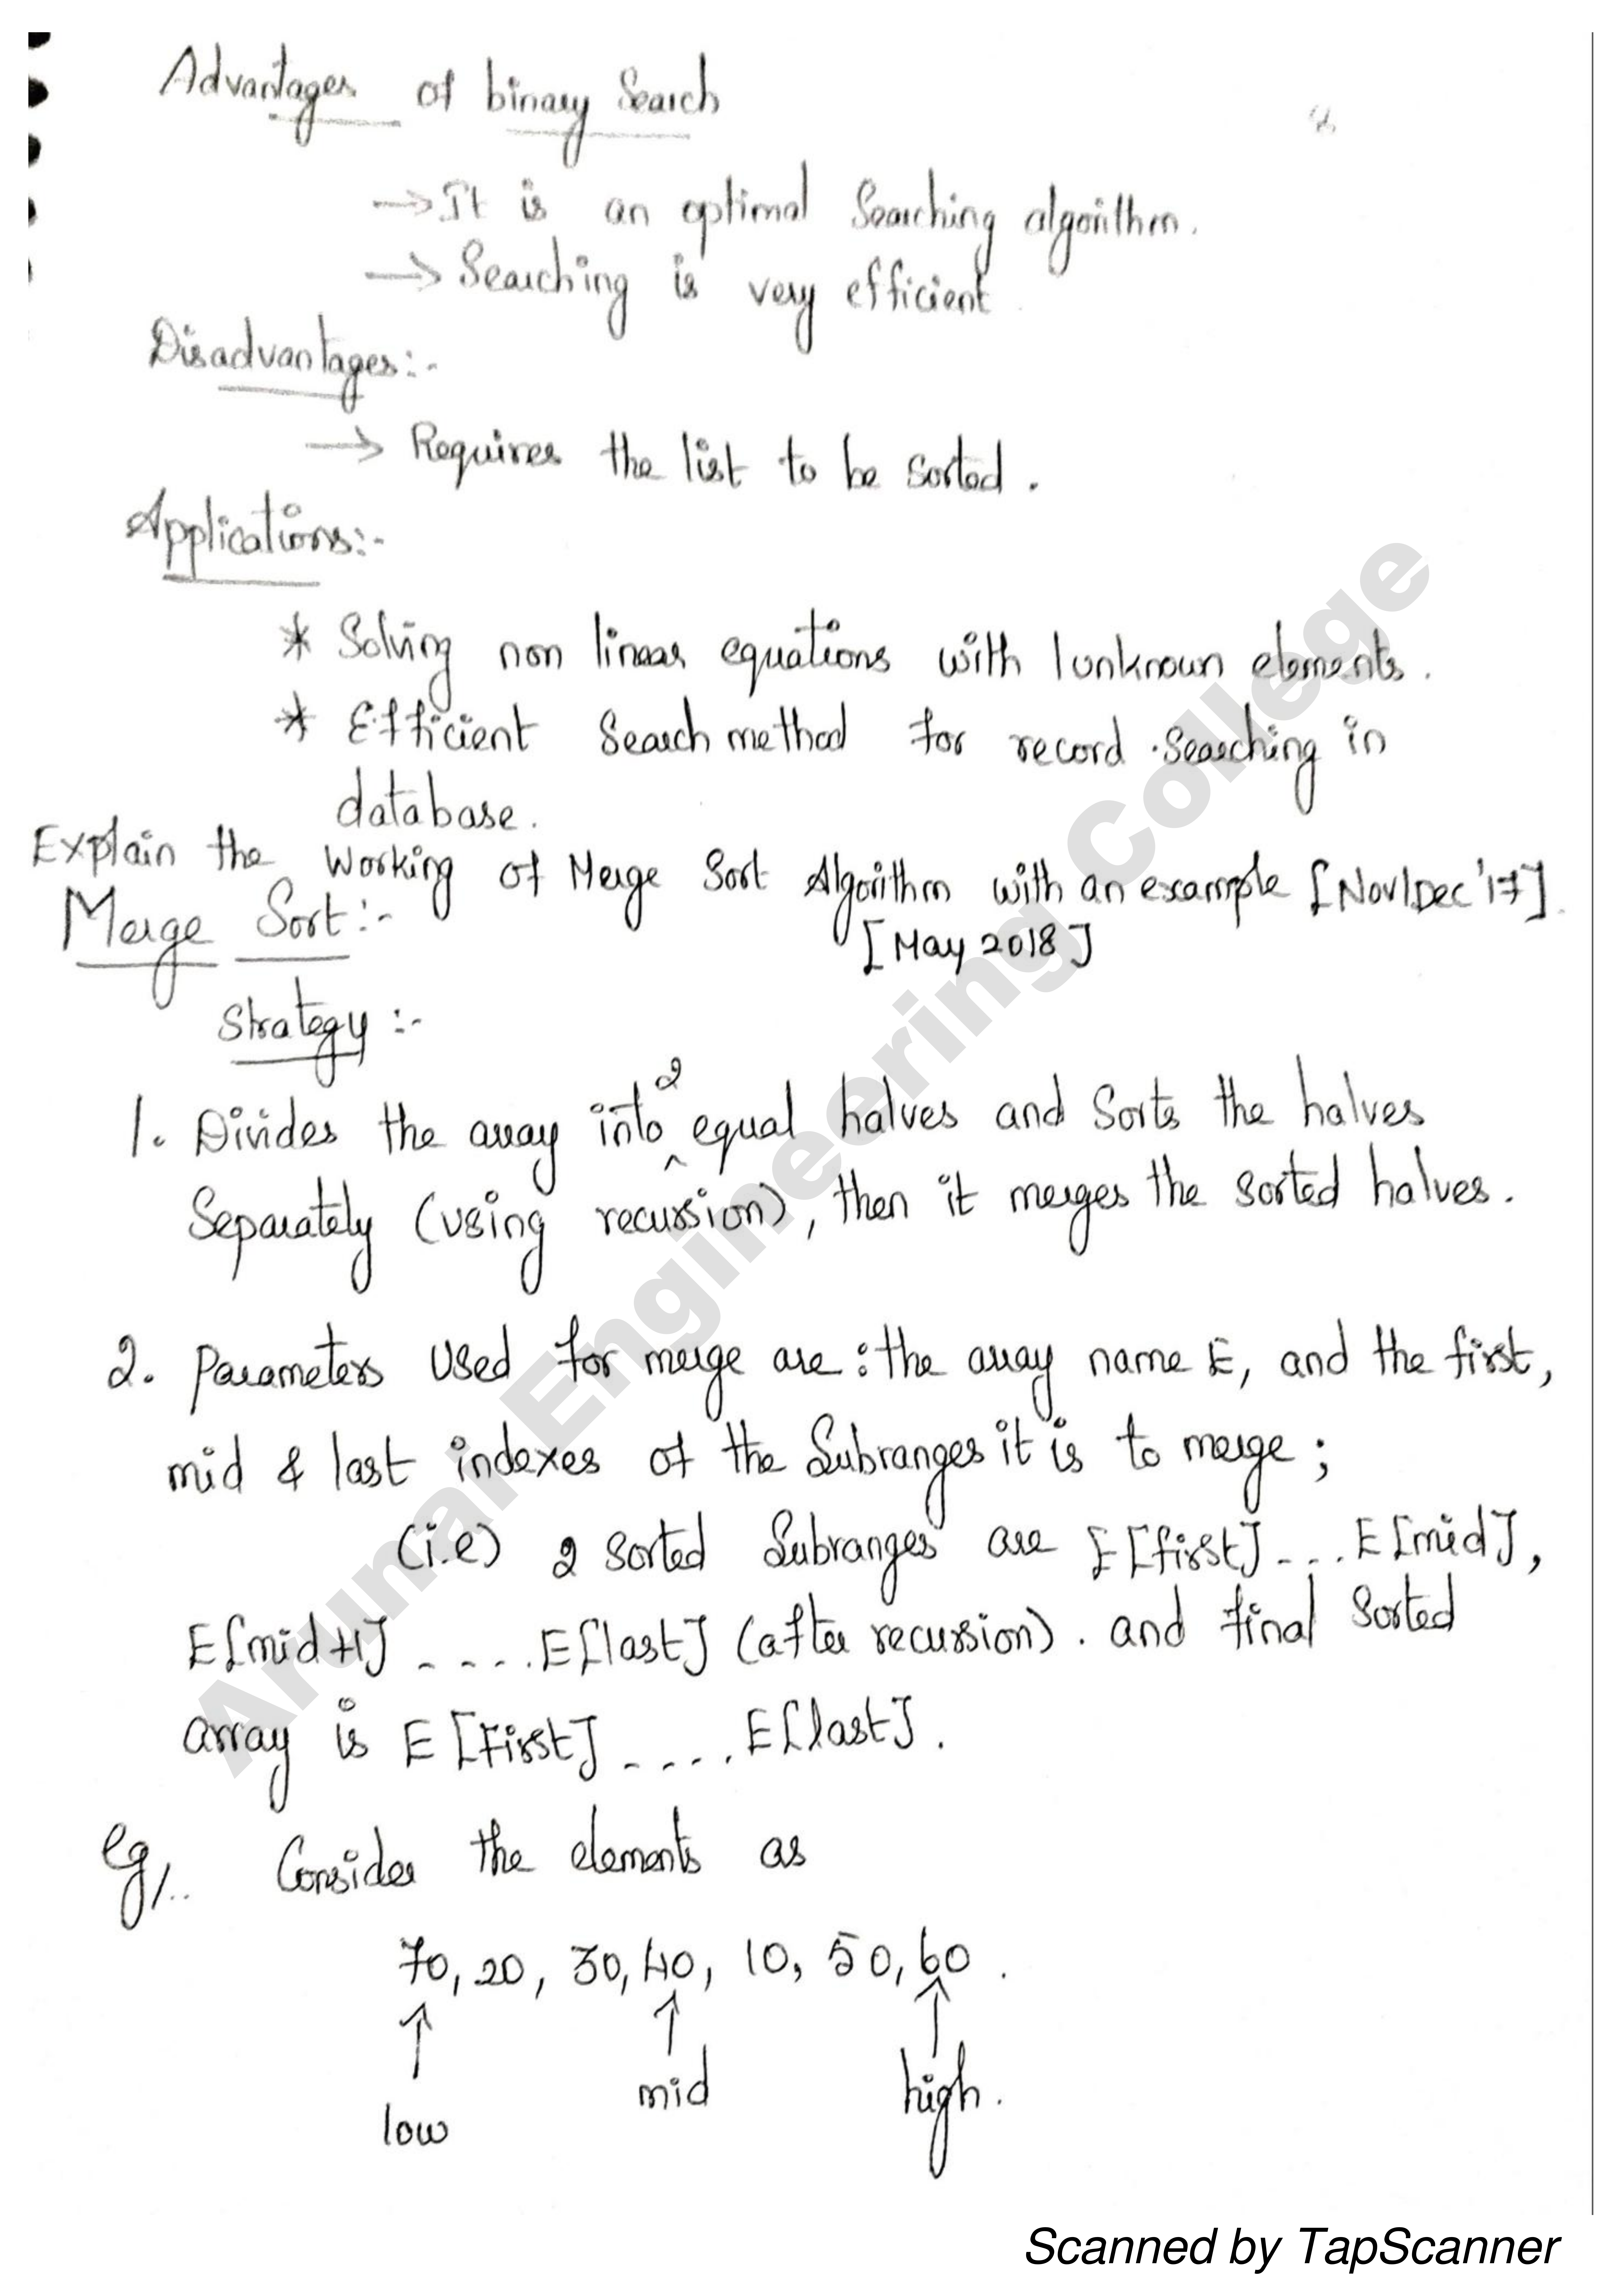 Advantages of binary Search
8
→ It is an optimal Searching algorithm.
→ Searching is very efficient
Disadvantages:-
→ Requires the list to be sorted.
Applications:-
* Solving non linear equations with 1 unknown elements.
* Efficient Search method for record Searching in
database.
Explain the Working of Merge Sort Algorithm with an example [Nov/Dec '17]
[May 2018]
Merge Sort:-
Strategy:-
1. Divides the array into 2 equal halves and Sorts the halves
Separately (using recursion), then it merges the sorted halves.
2. Parameters Used for merge are: the array name E, and the first,
mid & last indexes of the Subranges it is to merge;
(i.e) 2 sorted Subranges are E[first]....E[mid],
E[mid+1].....E[last] (after recursion). and final Sorted
array is E[First].....E[last].
Eg/.. Consider the elements as
70, 20, 30, 40, 10, 50, 60.
↑ ↑ ↑
low mid high.
Arunai Engineering College
Scanned by TapScanner